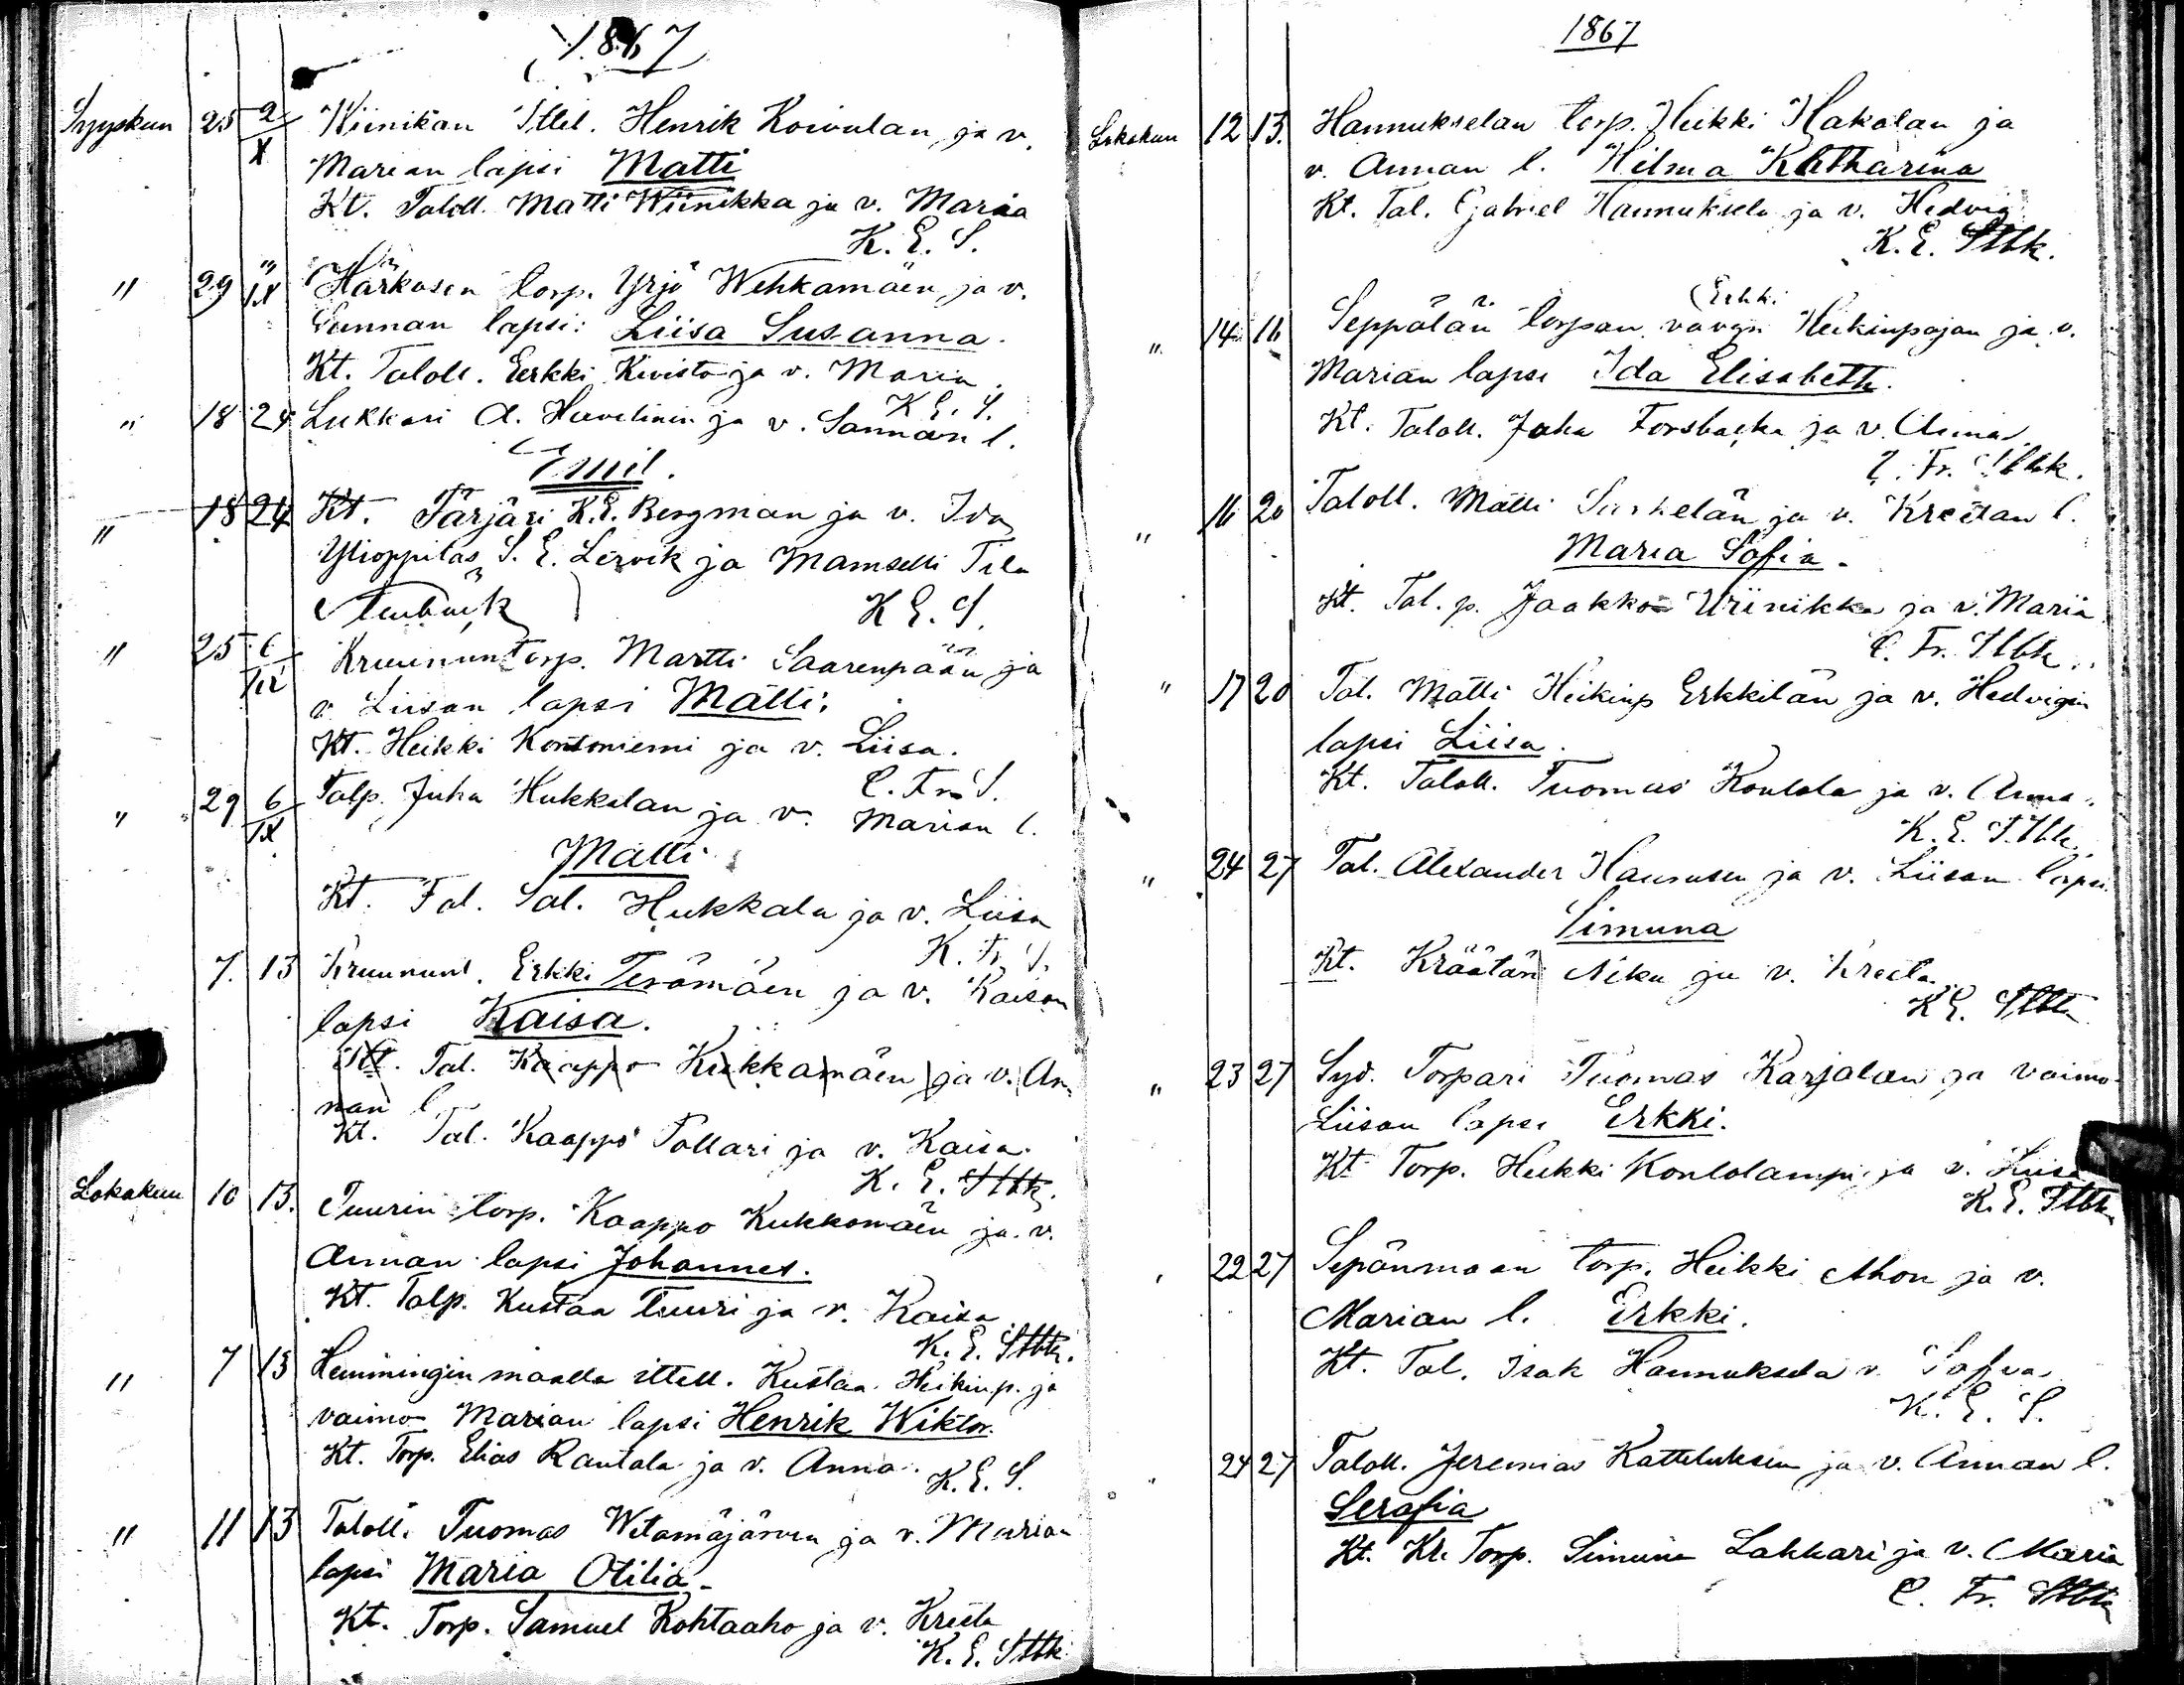 1867
Syyskuu 25 2/X Wiinikan Ittel. Henrik Koivulan ja v.
Marian lapsi Matti
Kt. Taloll. Matti Wiinikka ja v. Maria
K. E. S.
" 29 "/IX Härkösen torp. Yrjö Wehkamäen ja v.
Sannan lapsi: Liisa Susanna.
Kt. Taloll. Eerkki Kivistö ja v. Maria.
K. E. S.
" 18 24 Lukkari A. Havelinin ja v. Sannan l.
Emil.
" 18 24 Kt. Färjäri K.E. Bergman ja v. Ida
Ylioppilas S. E. Lervik ja Mamselli Tila
K E. S.
" 25 6/IX Kruununtorp. Martti Saarenpään ja
v. Liisan lapsi Matti:
Kt. Heikki Kontoniemi ja v. Liisa.
C. Fr. S.
" 29 6/IX Talp. Juha Hukkalan ja v. Marian l.
Matti
Kt. Tal. Sal. Hukkala ja v. Liisa
K. Fr. S.
7. 13 Kruununt. Erkki Terämäen ja v. Kaisan
lapsi Kaisa.
Kt. Tal. Kaappo Kukkamäen ja v. An
nan l
Kt. Tal. Kaappo Pollari ja v. Kaisa.
K. E. Stbk.
Lokakuu 10 13. Tuurin torp. Kaappo Kukkomäen ja v.
Annan lapsi Johannes.
Kt. Talp. Kustaa Tuuri ja v. Kaisa
K. E. Stbk.
" 7 13 Hemmingin maalla ittell. Kustaa Heikinp. ja
vaimo Marian lapsi Henrik Wiktor.
Kt. Torp. Elias Rantala ja v. Anna.
K. E. S.
" 11 13 Taloll. Tuomas Wetämäjärven ja v. Marian
lapsi Maria Otilia.
Kt. Torp. Samuel Kohtaaho ja v. Kreeta
K. E. Stbk
1867
Lokakuu 12 13. Hannukselan torp. Heikki Hakalan ja
v. Annan l. Hilma Katharina
Kt. Tal. Gabriel Hannuksela ja v. Hedvig
K. E. Stbk.
Erkki
" 14 16 Seppälän torpan vävyn Heikinpojan ja v.
Marian lapsi Ida Elisabeth.
Kt. Taloll. Juha Forsbacka ja v. Anna.
C. Fr. Stbk.
" 16 20 Taloll. Matti ja v. Kreetan l.
Maria Sofia.
Kt. Tal. p. Jaakko Wiinikka ja v. Maria
C. Fr. Stbk.
" 17 20 Tal. Matti Heikinp Erkkilän ja v. Hedvigin
lapsi Liisa.
Kt. Taloll. Tuomas Kontola ja v. Anna.
K. E. Stbk.
" 24 27 Tal. Alexander Hannusen ja v. Liisan lapsi
Simuna
Kt. Kräätäri ja v. Kreeta
K E. Stbk
" 23 27 Syd. Torpari Tuomas Karjalan ja vaimo
Liisan lapsi Erkki.
Kt Torp. Heikki Kontolampi ja v. Liisa
K. E. Stbk
" 22 27 Sepänmaan torp. Heikki Ahon ja v.
Marian l. Erkki.
Kt. Tal. Isak Hannuksela v. Sofia
K. E. S.
" 24 27 Taloll. Jeremias Katteluksen ja v. Annan l.
Serafia
Kt. Kr. Torp. Simuna Lakkari ja v. Maria
C. Fr. Stbk